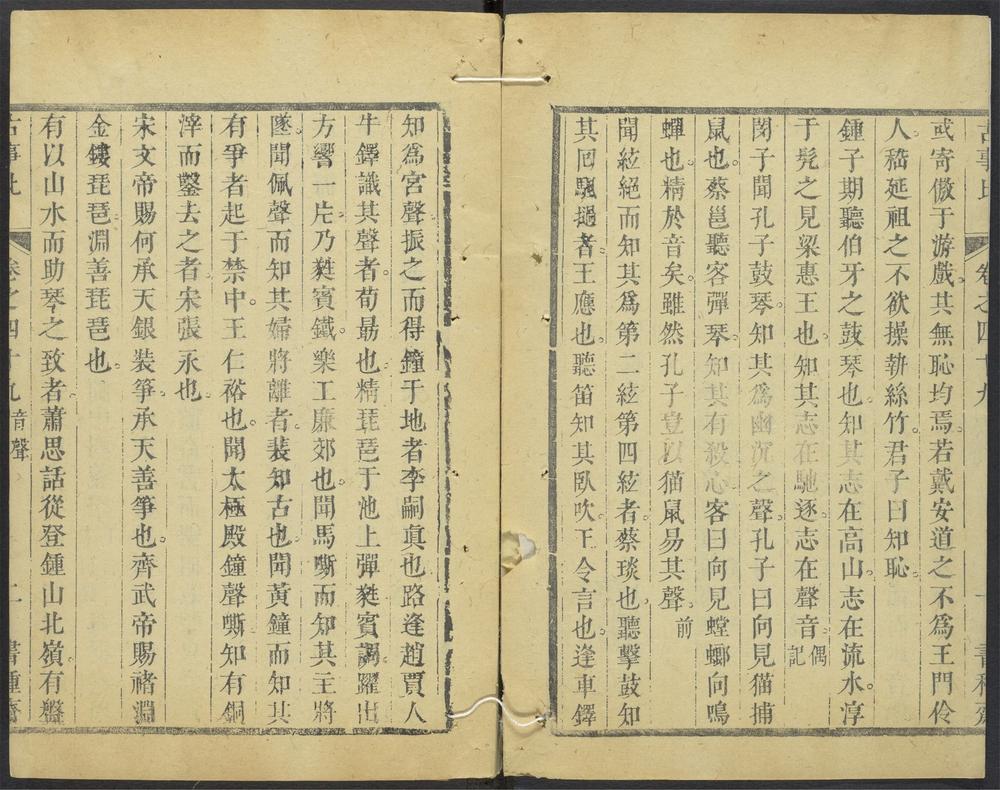 古事比 卷之四十九
或寄傲于游戲其無恥均焉若戴安道之不爲王門伶
人嵇延祖之不欲操執絲竹君子曰知恥
鍾子期聽伯牙之鼓琴也知其志在高山志在流水淳
于髡之見梁惠王也知其志在馳逐志在聲音偶記
閔子聞孔子鼓琴知其爲幽沉之聲孔子曰向見猫捕
鼠也蔡邕聽客彈琴知其有殺心客曰向見螳螂向鳴
蟬也精於音矣雖然孔子豈以猫鼠易其聲前
聞絃絕而知其爲第二絃第四絃者蔡琰也聽擊鼓知
其回颿撾者王應也聽笛知其臥吹王令言也逢車鐸
知爲宮聲振之而得鐘于地者李嗣真也路逢趙賈人
牛鐸識其聲者荀勗也精琵琶于池上彈蕤賓調躍出
方響一片乃蕤賓鐵樂工廉郊也聞馬嘶而知其主將
墜聞佩聲而知其婦將離者裴知古也聞黃鐘而知其
有爭者起于禁中王仁裕也聞太極殿鐘聲嘶知有銅
滓而鑿去之者宋張永也
宋文帝賜何承天銀裝箏承天善箏也齊武帝賜褚淵
金鏤琵琶淵善琵琶也
有以山水而助琴之致者蕭思話從登鍾山北嶺有盤
古事比 卷之四十九 音聲 二 書種齋